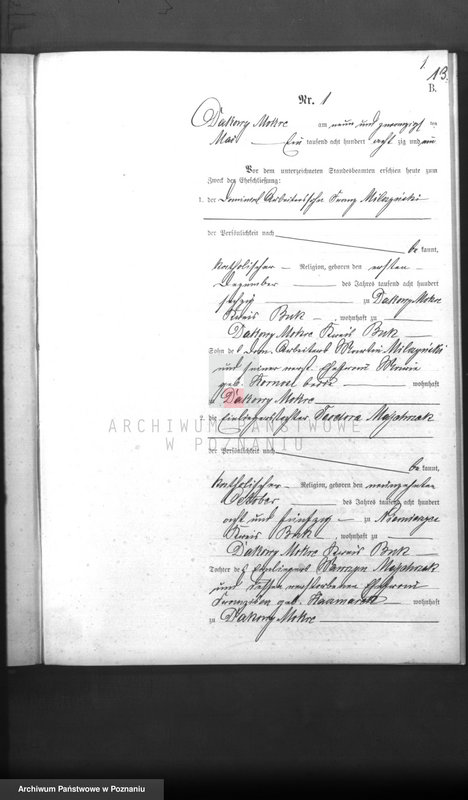 1
13.
B.
Nr. 1
Dakowy Mokre am neun und zwanzigsten
Mai Ein tausend acht hundert acht zig und
Vor dem unterzeichneten Standesbeamten erschien heute zum
Zweck der Eheschließung:
1. der Dominial Arbeitersohn Franz
der Persönlichkeit nach
be kannt,
katholischer Religion, geboren den ersten
Dezember des Jahres tausend acht hundert
sechzig zu Dakowy Mokre
Kreis Buk, wohnhaft zu
Dakowy Mokre Kreis Buk
Sohn des Dom. Arbeiters
und seiner Ehefrau
geb. wohnhaft
zu Dakowy Mokre
2. die Einliegerstochter Teodora Majchrzak
der Persönlichkeit nach
be kannt,
katholischer Religion, geboren den neunzehnten
Oktober des Jahres tausend acht hundert
acht und fünfzig zu Niemierzyce
Kreis Buk, wohnhaft zu
Dakowy Mokre Kreis Buk
Tochter des Einliegers Wawrzyn Majchrzak
und dessen verstorbenen Ehefrau
geb. Kaczmarek wohnhaft
zu Dakowy Mokre
ARCHIWUM PAŃSTWOWE
W POZNANIU
Archiwum Państwowe w Poznaniu